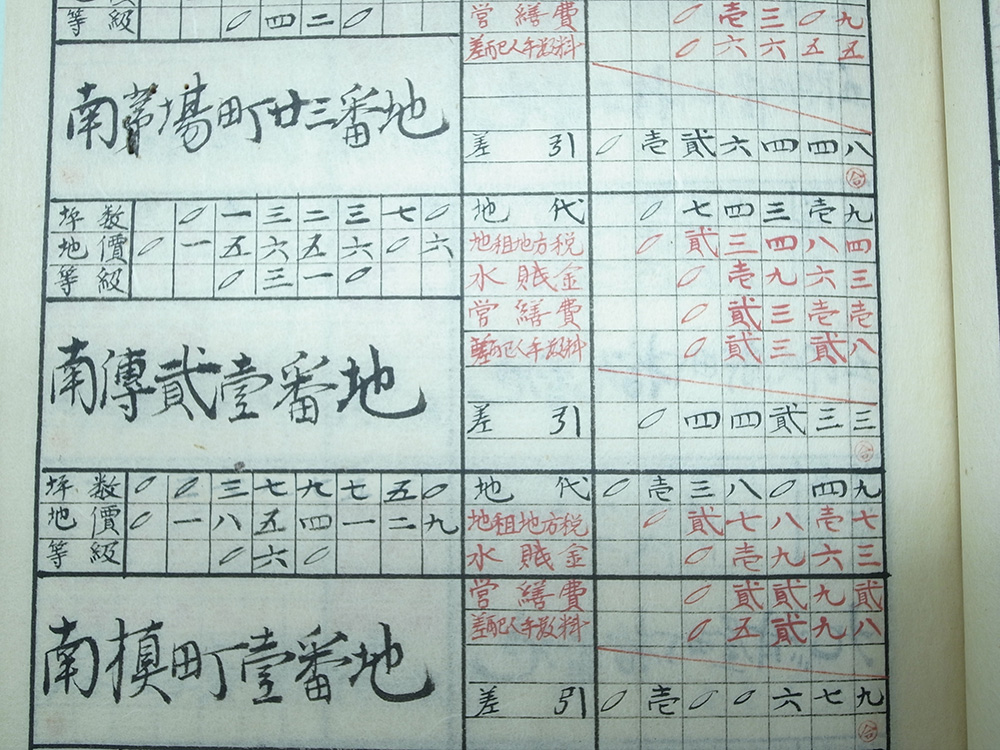 等級 〇四二〇
南茅場町廿三番地
営繕費 〇壱三〇九
差配人手数料 〇六六五五
差引 〇壱貳六四四八
坪数 〇一三二三七〇
地價 〇一五六五六〇六
等級 〇三一〇
南傳貳壹番地
地代 〇七四三壱九
地租地方税 〇貳三四八四
水賎金 〇壱九六三
営繕費 〇貳三壱壱
差配人手数料 〇貳三貳八
差引 〇四四貳三三
坪数 〇〇三七九七五〇
地價 〇一八五四一二九
等級 〇六〇
南槙町壹番地
地代 〇壱三八〇四九
地租地方税 〇貳七八壱七
水賎金 〇壱九六三
営繕費 〇貳貳九貳
差配人手数料 〇五貳九八
差引 〇壱〇〇六七九